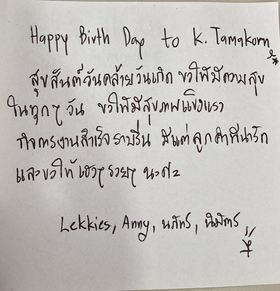 Happy Birth Day to K. Tamakorn
สุขสันต์วันคล้ายวันเกิด ขอให้มีความสุข
ในทุกๆวัน ขอให้มีสุขภาพแข็งแรง
กิจการงานสำเร็จราบรื่น มีแต่ลูกค้าที่น่ารัก
และขอให้เฮงๆรวยๆ นะคะ
Lekkies, Anny, นภัทร์, นิมิตร